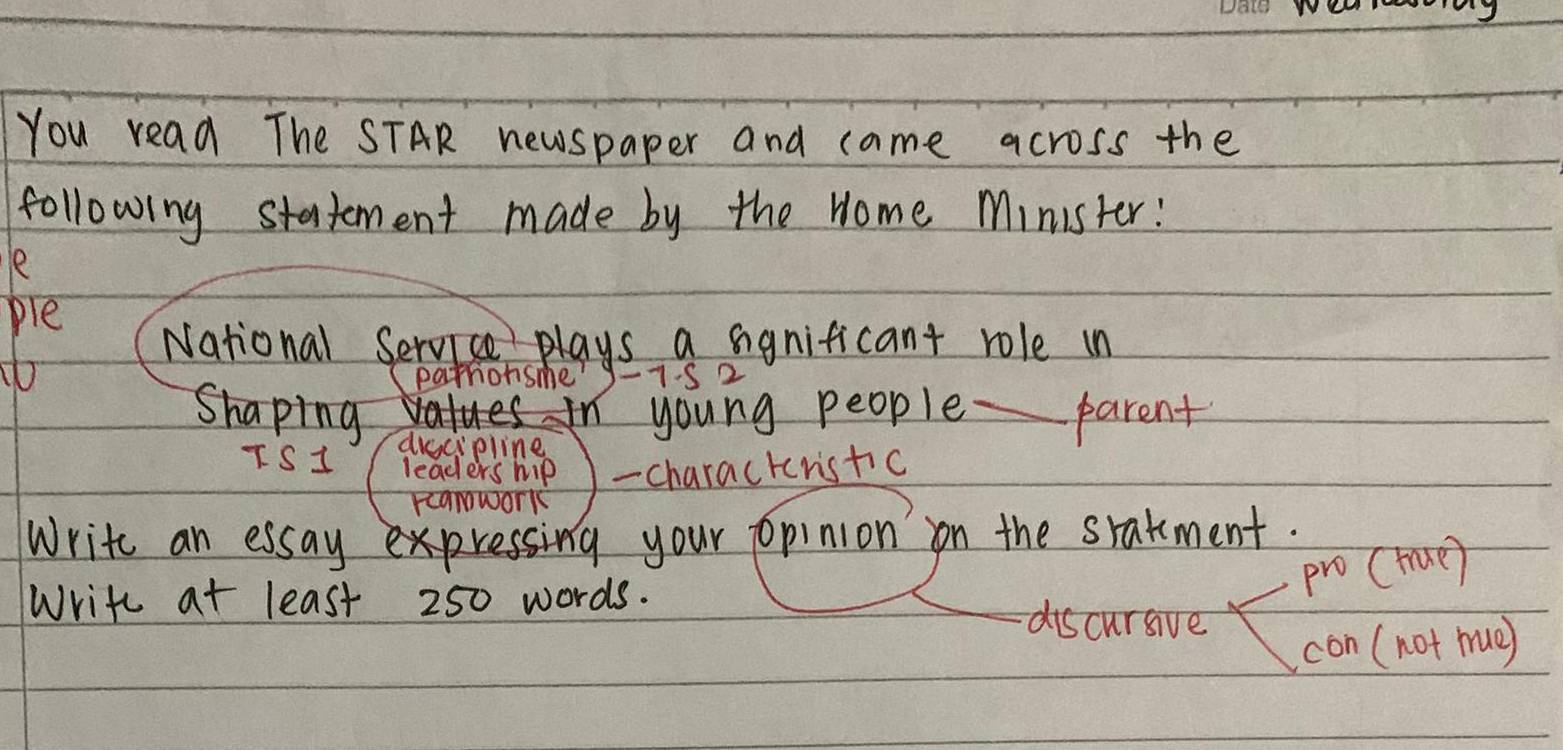 Date Wednesday
You read The STAR newspaper and came across the
following statement made by the Home Minister:
e
ple
National Service plays a significant role in
patriotisme - T.S 2
Shaping values in young people parent
TS1 discipline
leadership - characteristic
teamwork
Write an essay expressing your opinion on the statement.
pro (true)
Write at least 250 words.
discursive
con (not true)